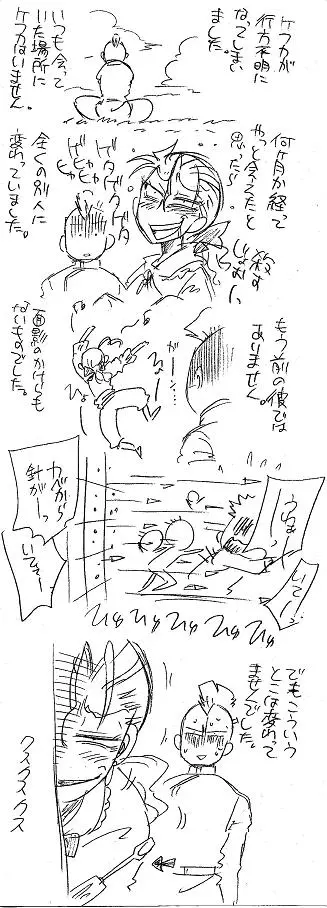 ケフカが
行方不明に
なってしまい
ました。
いつも会って
いた場所に
ケフカはいません。
何ヶ月か経って
やっと会えたと
思ったら
ゲタゲタゲタ
ゲヒャヒャヒャ
殺す
全くの別人に
変わっていました。
もう前の彼では
ありません。
がーん…
面影のかけらも
ないものでした。
うわっ
いてー
カベから
針がーっ
いてー
ひゅ
ひゅ
ひゅ
ひゅ
ひゅ
でもこういう
とこは変わって
ませんでした。
クスクスクス